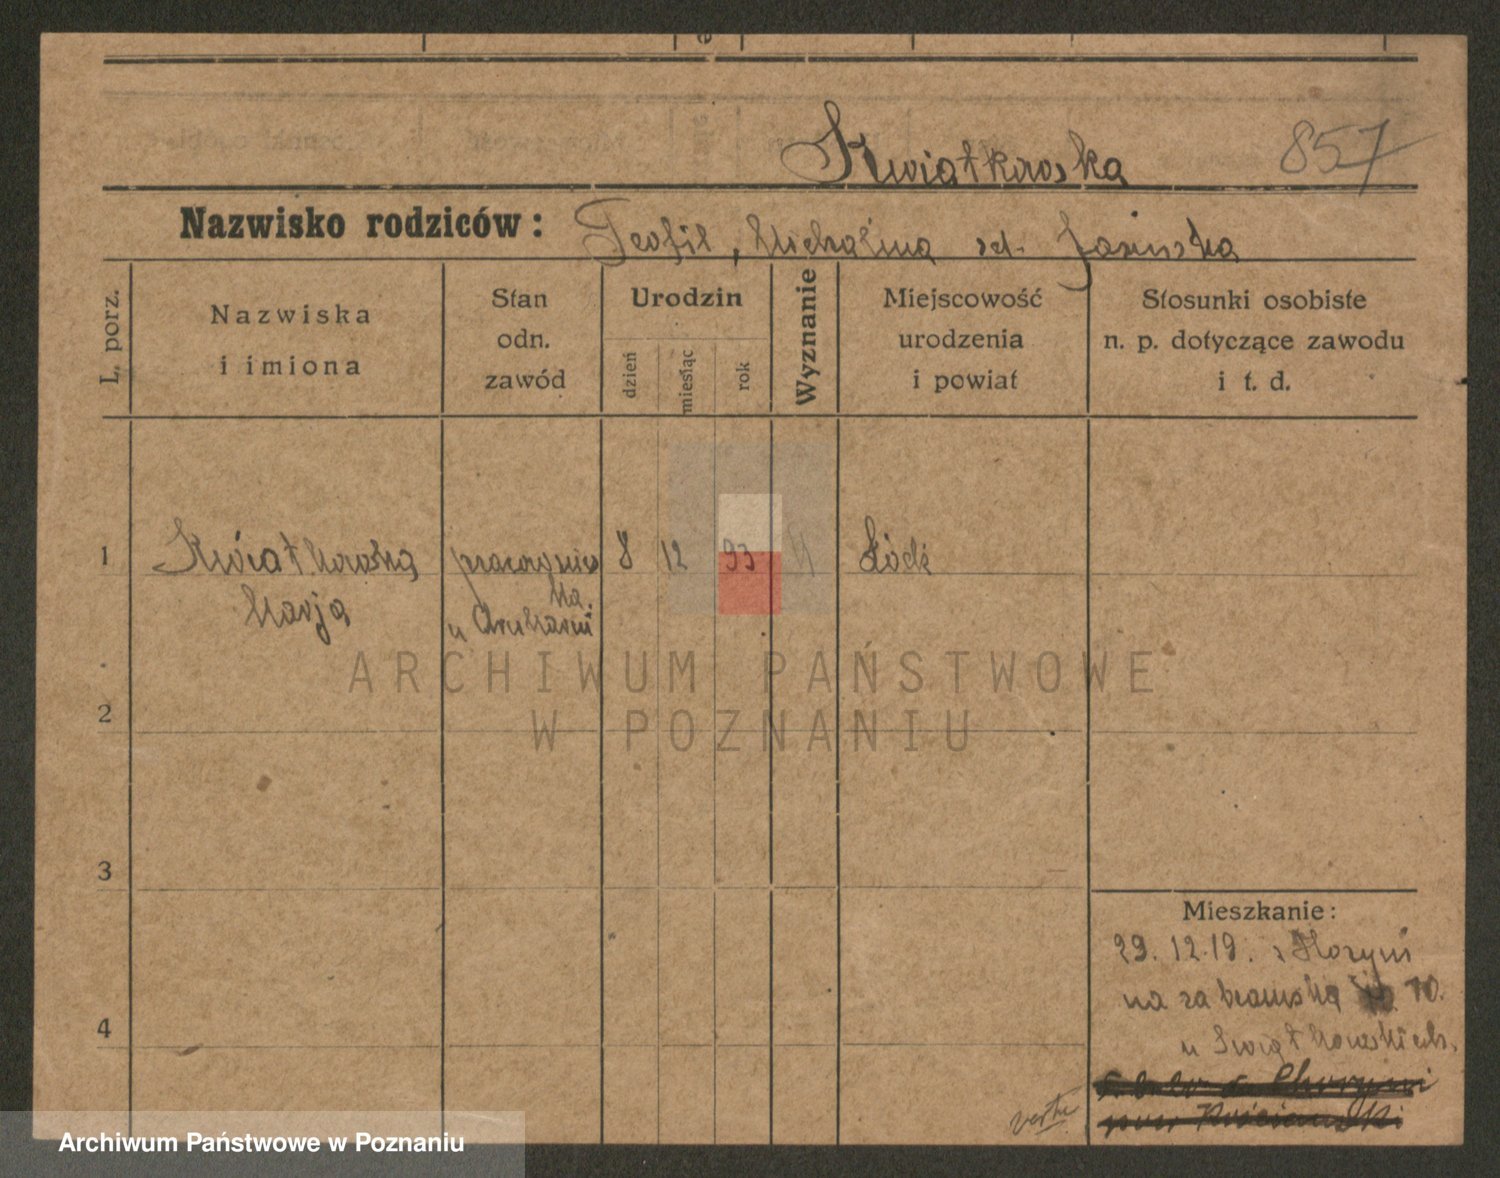 Kwiatkowska 857
Nazwisko rodziców: Teofil, Michalina Jasińska
L. porz.
Nazwiska
i imiona
Stan
odn.
zawód
Urodzin
dzień
miesiąc
rok
Wyznanie
Miejscowość
urodzenia
i powiat
Stosunki osobiste
n. p. dotyczące zawodu
i t. d.
1 Kwiatkowska pracowni 8 12 93 Łódź
Marja
ka.
w drukarni
2
3
4
Mieszkanie:
29.12.19. z
na 10.
u
verte
ARCHIWUM PAŃSTWOWE
W POZNANIU
Archiwum Państwowe w Poznaniu